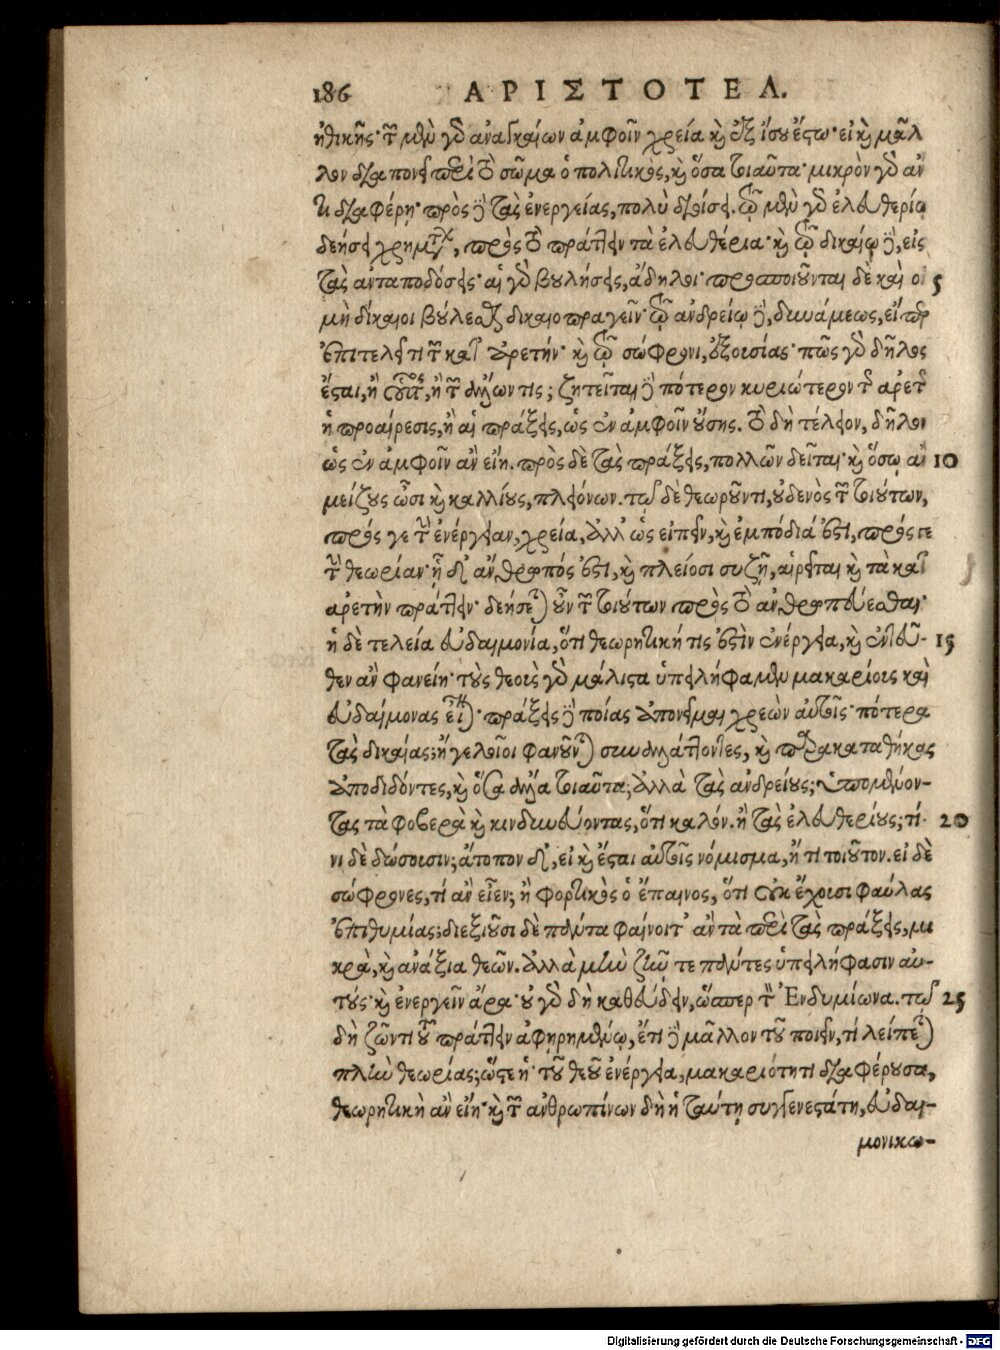 186 ΑΡΙΣΤΟΤΕΛ.
ἠθικῆς· τῶν μὲν γὸ ἀναγκαίων ἀμφοῖν χρεία καὶ ἐξ ἴσου ἔςω· εἰ καὶ μᾶλ
λον διαπονεῖ περὶ τὸ σῶμα ὁ πολιτικὸς, καὶ ὅσα τοιαῦτα· μικρὸν γὸ ἄν
τι διαφέρῃ· πρὸς δὲ τὰς ἐνεργείας, πολὺ διοίσει. τῷ μὲν γὸ ἐλευθερίῳ
δεήσει χρημάτων, πρὸς τὸ πράττειν τὰ ἐλευθέρια· καὶ τῷ δικαίῳ δὲ, εἰς
τὰς ἀνταποδόσεις· αἱ γὸ βουλήσεις, ἄδηλοι· προσποιοῦνται δὲ καὶ οἱ 5
μὴ δίκαιοι βούλεσθαι δικαιοπραγεῖν· τῷ ἀνδρείῳ δὲ, δυνάμεως, εἴπερ
ἐπιτελεῖ τι τῶν κατ᾽ ἀρετήν· καὶ τῷ σώφρονι, ἐξουσίας· πῶς γὸ δῆλος
ἔςαι, ἢ οὗτος, ἢ τῶν ἄλλων τις; ζητεῖται δὲ πότερον κυριώτερον τῆς ἀρετῆς
ἡ προαίρεσις, ἢ αἱ πράξεις, ὡς ἐν ἀμφοῖν οὔσης. τὸ δὴ τέλειον, δῆλον
ὡς ἐν ἀμφοῖν ἂν εἴη. πρὸς δὲ τὰς πράξεις, πολλῶν δεῖται· καὶ ὅσῳ αἱ 10
μείζους ὦσι καὶ καλλίους, πλειόνων. τῷ δὲ θεωροῦντι, οὐδενὸς τῶν τοιούτων,
πρός γε τὴν ἐνέργειαν, χρεία, ἀλλ᾽ ὡς εἰπεῖν, καὶ ἐμπόδιά ἐςι, πρός τε
τὴν θεωρίαν· ᾗ δ᾽ ἄνθρωπός ἐςι, καὶ πλείοσι συζῇ, αἱρεῖται καὶ τὰ κατ᾽
ἀρετὴν πράττειν· δεήσεται οὖν τῶν τοιούτων πρὸς τὸ ἀνθρωπεύεσθαι·
ἡ δὲ τελεία εὐδαιμονία, ὅτι θεωρητική τις ἐςὶν ἐνέργεια, καὶ ἐντεῦ- 15
θεν ἂν φανείη· τοὺς θεοὺς γὸ μάλιςα ὑπειλήφαμεν μακαρίους καὶ
εὐδαίμονας εἶναι· πράξεις δὲ ποίας ἀπονεῖμαι χρεὼν αὐτοῖς· πότερα
τὰς δικαίας; ἢ γελοῖοι φανοῦνται συναλλάττοντες, καὶ παρακαταθήκας
ἀποδιδόντες, καὶ ὅσα ἄλλα τοιαῦτα; ἀλλὰ τὰς ἀνδρείους; ὑπομένον-
τας τὰ φοβερὰ καὶ κινδυνεύοντας, ὅτι καλόν. ἢ τὰς ἐλευθερίους; τί- 20
νι δὲ δώσουσιν; ἄτοπον δ᾽, εἰ καὶ ἔςαι αὐτοῖς νόμισμα, ἤ τι τοιοῦτον. εἰ δὲ
σώφρονες, τί ἂν εἶεν; ἢ φορτικὸς ὁ ἔπαινος, ὅτι οὐκ ἔχουσι φαύλας
ἐπιθυμίας; διεξιοῦσι δὲ πάντα φαίνοιτ᾽ ἂν τὰ περὶ τὰς πράξεις, μι
κρὰ, καὶ ἀνάξια θεῶν. ἀλλὰ μὴν ζῆν τε πάντες ὑπειλήφασιν αὐ-
τούς· καὶ ἐνεργεῖν ἄρα· οὐ γὸ δὴ καθεύδειν, ὥσπερ τὸν Ἐνδυμίωνα. τῷ 25
δὴ ζῶντι τοῦ πράττειν ἀφῃρημένῳ, ἔτι δὲ μᾶλλον τοῦ ποιεῖν, τί λείπεται
πλὴν θεωρίας; ὥςε ἡ τοῦ θεοῦ ἐνέργεια, μακαριότητι διαφέρουσα,
θεωρητικὴ ἂν εἴη· καὶ τῶν ἀνθρωπίνων δὴ ἡ ταύτῃ συγγενεςάτη, εὐδαι-
μονικω-
Digitalisierung gefördert durch die Deutsche Forschungsgemeinschaft - DFG